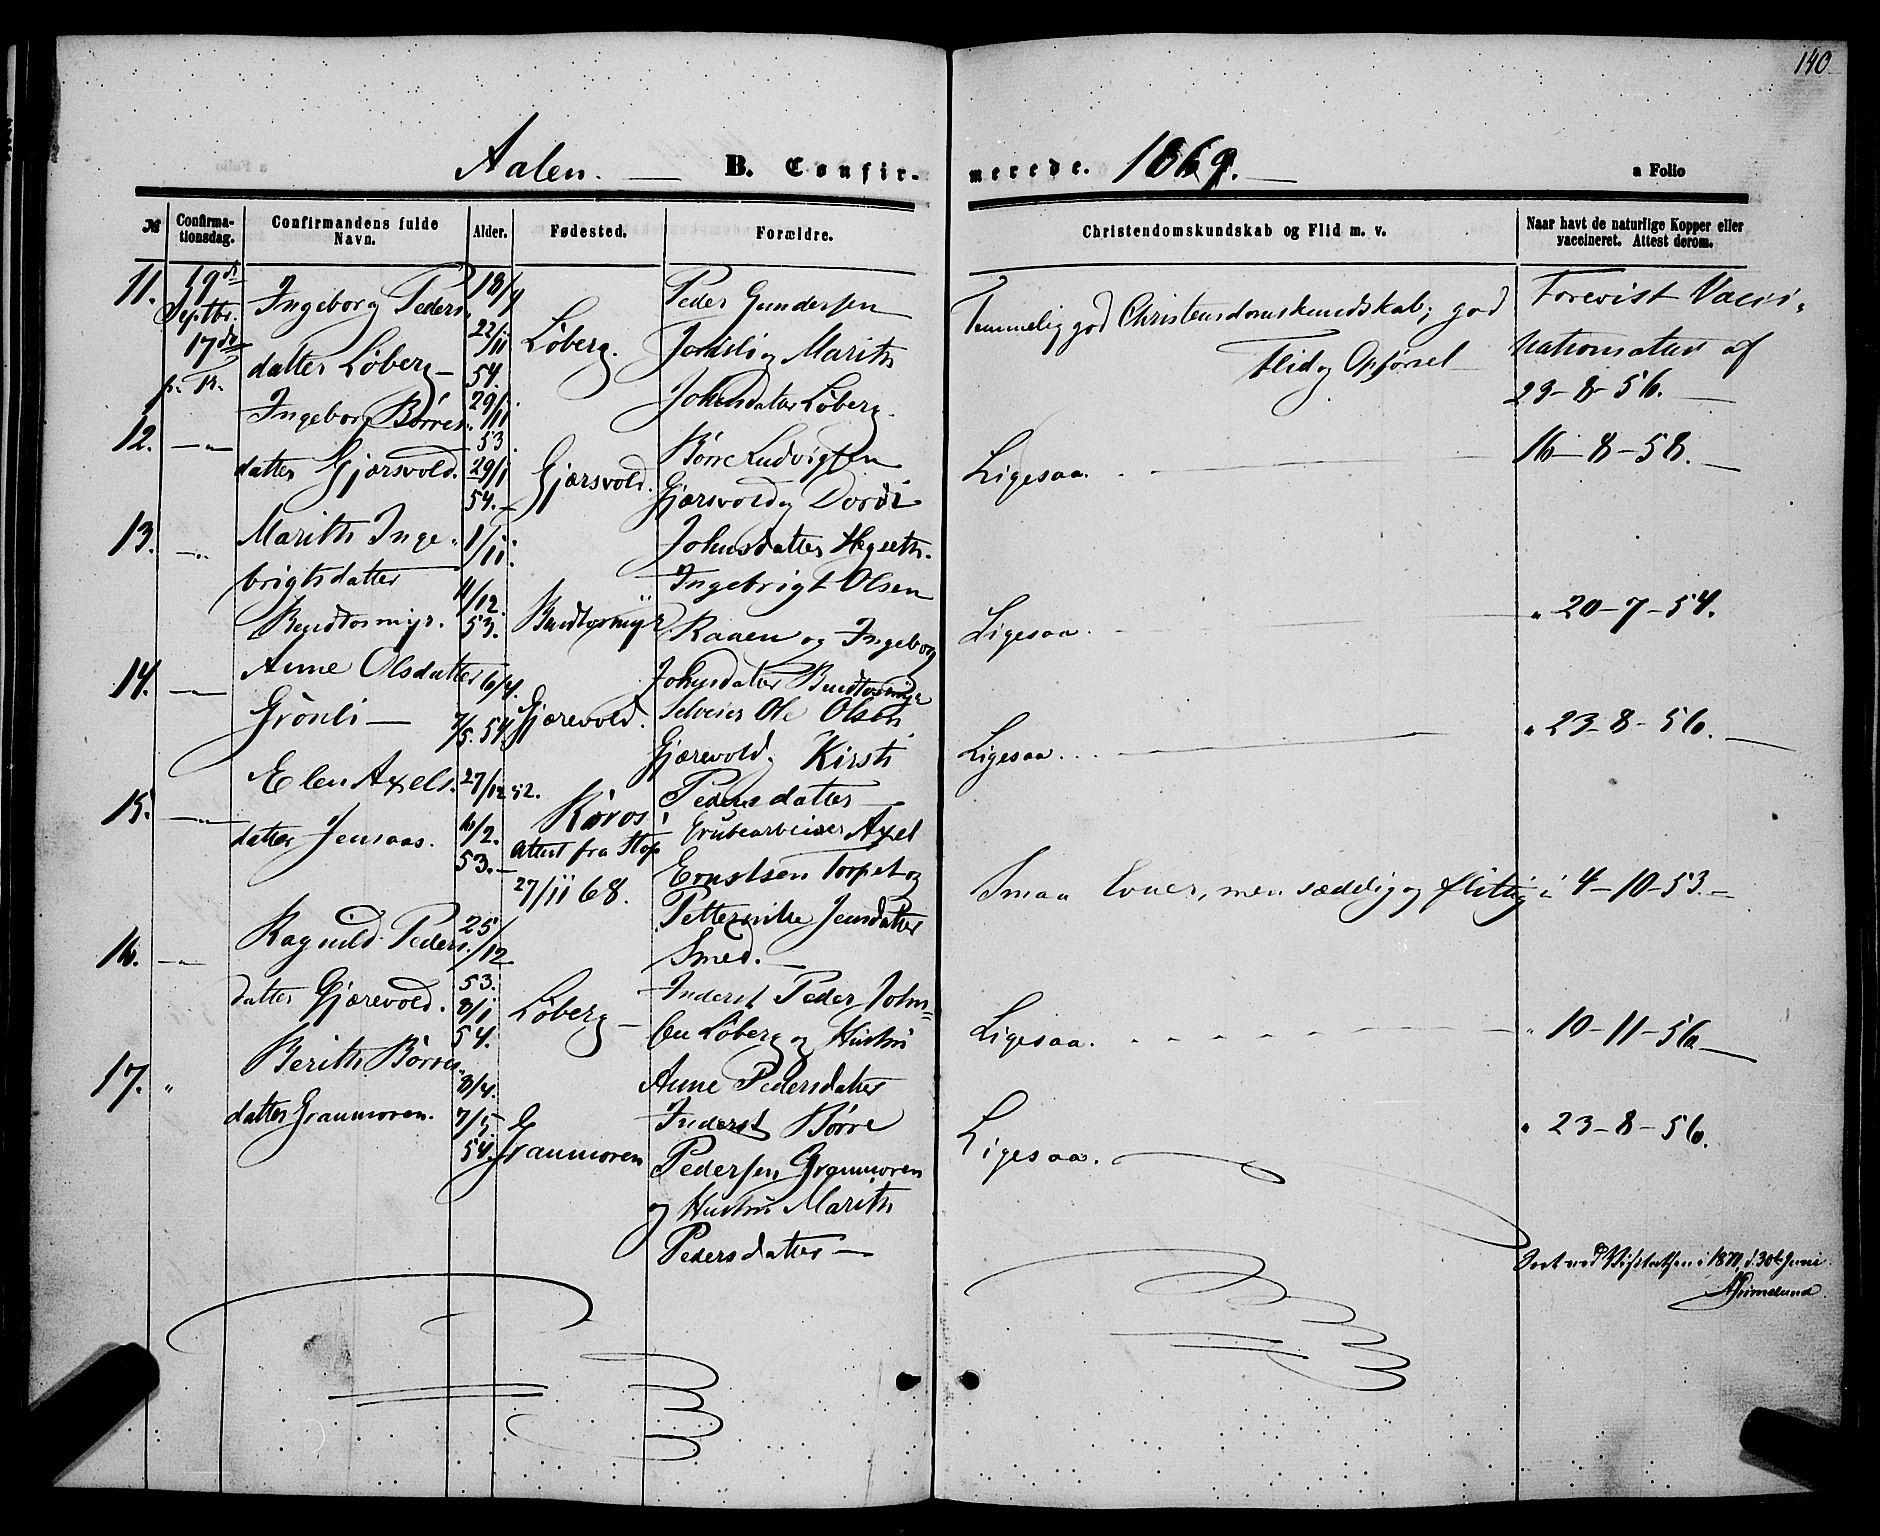 140
Aalen. — B. Confirmerede. 1869. —
a Folio
№
Confirmationsdag.
Confirmandens fulde Navn.
Alder.
Fødested.
Forældre.
Christendomskundskab og Flid m. v.
Naar havt de naturlige Kopper eller vaccineret. Attest derom.
11.
19de
Septbr.
17de
p. Tr.
Ingeborg Peders-
datter Løberg —
18/4
22/11
54.
Løberg.
Peder Gundersen
og Marith
Johnsdatter Løberg.
Temmelig god Christendomskundskab; god
Flid og Opførsel
Forevist Vacci-
nationsattest af
23-8-56. —
12. — " —
Ingeborg Børres-
datter Gjærsvold.
29/11
53.
29/1
54. —
Gjærsvold.
Børre Ludvigsen
Gjærsvold og Dorði
Johnsdatter Hegseth.
Ligesaa. —
16-8-58. —
13. — " —
Marith Inge-
brigtsdatter
Bendtosmyr.
1/11.
11/12.
53.
Bendtosmyr
Ingebrigt Olsen
Raaen og Ingeborg
Johnsdatter Bendtosmyr
Ligesaa. —
" 20-7-54.
14. — " —
Anne Olsdatter
Grønli —
6/4.
7/5. 54.
Gjærevold.
Selveier Ole Olsen
Gjærevold og Kirsti
Pedersdatter —
Ligesaa. . . —
" 23-8-56. —
15. — " —
Elen Axels-
datter Jensaas.
27/12 52.
6/2.
53. —
Røros,
Attest fra Stop
27/11 68.
Grubearbeider Axel
Ernstsen Torpet og
Petternilke Jensdatter
Smed. —
Smaa Evner, men sædelig og flittig
" 4-10-53. —
16. — " —
Ragnild Peders-
datter Gjærevold.
25/12
53.
8/1
54.
Løberg —
Inderst Peder John-
sen Løberg og Hustru
Anne Pedersdatter
Ligesaa. —
" 10-11-56 —
17. "
Berith Børres-
datter Granmoren.
8/4.
7/5.
54.
Granmoren
Inderst Børre
Pedersen Granmoren
og Hustru Marith
Pedersdatter —
Ligesaa.
" 23-8-56.